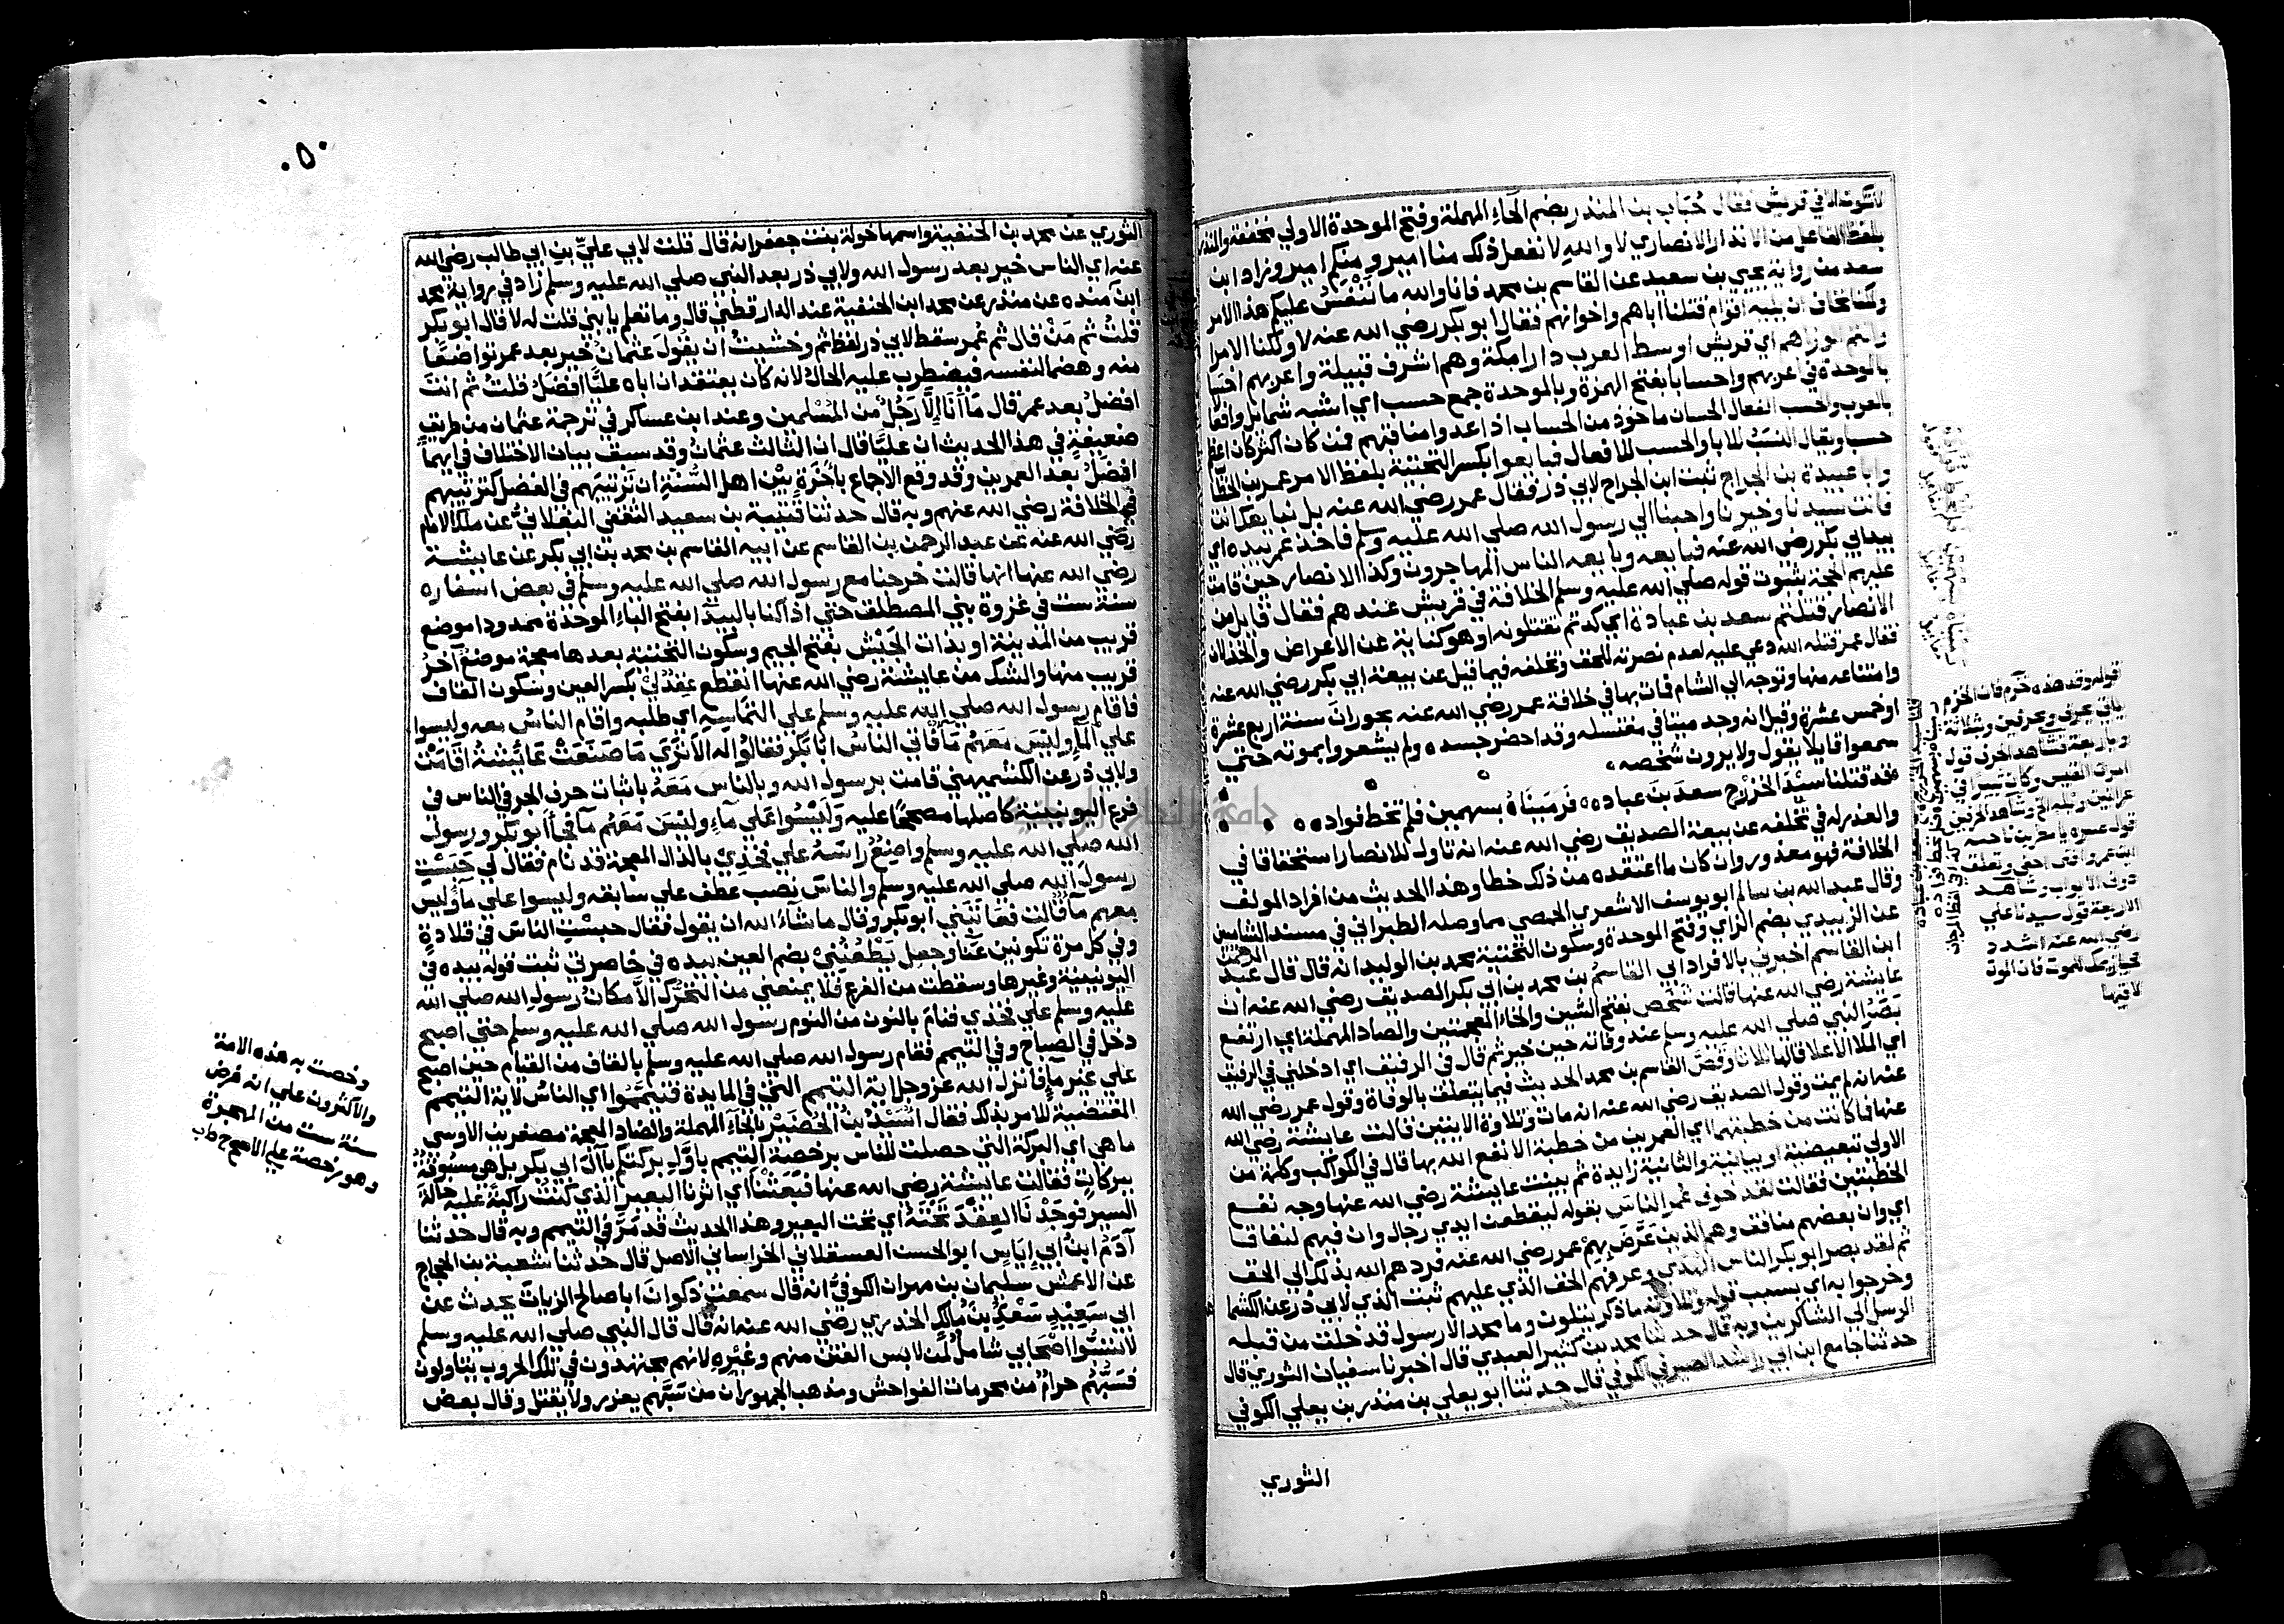 لا تكون الا في قريش فقال حُبَاب بن المنذر بضم الحاء المهملة وفتح الموحدة الاولي مخففة والمنذر
بلفظ الفاعل من الانذار الانصاري لا والله لا نفعل ذلك منا امير ومنكم امير وزاد ابن
سعد من رواية يحيي بن سعيد عن القاسم بن محمد فانا والله ما ننفس عليكم هذا الامر
ولكنا نخاف ان يليه اقوام قتلنا اباهم واخوانهم فقال ابو بكر رضي الله عنه لا ولكنا الامرا
وانتم الوزرا هم اي قريش اوسط العرب دارا مكة وهم اشرف قبيلة واعربهم احسابا
بالموحدة في اعربهم واحسابا بفتح الهمزة وبالموحدة جمع حسب اي اشبه شمايل وافعالا
بالعرب والحسب الفعال الحسان ماخوذ من الحساب اذا عدوا مناقبهم فمن كان اكثر كان اعظم
حسبا ويقال النسب للابا والحسب للافعال فبايعوا بكسر التحتية بلفظ الامر عمر بن الخطاب
وابا عبيدة بن الجراح ثبت ابن الجراح لابي ذر فقال عمر رضي الله عنه بل نبايعك انت
فانت سيدنا وخيرنا واحبنا الي رسول الله صلي الله عليه وسلم فاخذ عمر بيده اي
بيد ابي بكر رضي الله عنه فبايعه وبايعه الناس المهاجرون وكذا الانصار حين قامت
عليهم الحجة بثبوت قوله صلي الله عليه وسلم الخلافة في قريش عندهم فقال قايل من
الانصار قتلتم سعد بن عبادة اي كدتم تقتلونه او هو كناية عن الاعراض والخذلان
فقال عمر قتله الله دعي عليه لعدم نصرته للحق وتخلفه فيما قيل عن بيعة ابي بكر رضي الله عنه
وامتناعه منها وتوجه الي الشام فمات بها في خلافة عمر رضي الله عنه بحوران سنة اربع عشرة
او خمس عشرة وقيل انه وجد ميتا في مغتسله وقد اخضر جسده ولم يشعروا بموته حتي
سمعوا قايلا يقول ولا يرون شخصه
قد قتلنا سيد الخزرج سعد بن عباده فرميناه بسهمين فلم تخط فواده
والعذر له في تخلفه عن بيعة الصديق رضي الله عنه انه تاول للانصار استحقاقا في
الخلافة فهو معذور وان كان ما اعتقده من ذلك خطا وهذا الحديث من افراد المولف
وقال عبد الله بن سالم ابو يوسف الاشعري الحمصي مما وصله الطبراني في مسند الشاميين
عن الزبيدي بضم الزاي وفتح الموحدة وسكون التحتية محمد بن الوليد انه قال قال عبد الرحمن
ابن القاسم اخبرني بالافراد ابي القاسم بن محمد بن ابي بكر الصديق رضي الله عنه ان
عايشة رضي الله عنها قالت شخص بفتح الشين والخاء المعجمتين والصاد المهملة اي ارتفع
بصر النبي صلي الله عليه وسلم عند وفاته حين خير ثم قال في الرفيق اي ادخلني في الرفيق
اي الملا الاعلا قالها ثلاثا وقص القاسم بن محمد الحديث فيما يتعلق بالوفاة وقول عمر رضي الله
عنه انه لم يمت وقول الصديق رضي الله عنه انه مات وتلاوة الايتين قالت عايشة رضي الله
عنها فما كانت من خطبتهما اي العمرين من خطبة الا نفع الله بها قال في الكواكب وكلمة من
الاولي تبعيضية او بيانية والثانية زايدة ثم بينت عايشة رضي الله عنها وجه نفع
الخطبتين فقالت لقد خوف عمر الناس بقوله ليقطعن ايدي رجال وان فيهم لنفاقا
اي وان بعضهم منافق وهم الذين عرض بهم عمر رضي الله عنه فردهم الله بذلك الي الحق
ثم لقد بصر ابو بكر الناس الهدي وعرفهم الحق الذي عليهم ثبت الذي لابي ذر عن الكشما
وخرجوا به اي بسبب قوله وتلاوته ما ذكر يتلون وما محمد الا رسول قد خلت من قبله
الرسل الي الشاكرين وبه قال حدثنا محمد بن كثير العبدي قال اخبرنا سفيان الثوري قال
حدثنا جامع ابن ابي راشد الصيرفي الكوفي قال حدثنا ابو يعلي بن منذر بن يعلي الكوفي
الثوري
قوله وقد هذه خرم فان الخزم
ياتي بحرف وبحرفين وبثلاثة
وباربعة فشاهد احرف قول
امرئ القيس وكان ثبيرا في
عرانين وبله الخ وشاهد الحرفين
رضي الله عنه اشدد
حيازيمك للموت فان الموت
لاقيها
٥٠
الثوري عن محمد بن الحنفية واسمها خولة بنت جعفر انه قال قلت لابي عليّ بن ابي طالب رضي الله
عنه اي الناس خير بعد رسول الله ولابي ذر بعد النبي صلي الله عليه وسلم زاد في رواية محمد
ابن منده عن منذر عن محمد ابن الحنفية عند الدارقطني قال وما تعلم يا بني قلت له لا قال ابو بكر
قلتُ ثم مَنْ قال ثم عُمر سقط لابي ذر لفظ ثم وخشيتُ ان يقولَ عثمانُ خير بعد عمر تواضعًا
منه وهضما لنفسه فيضطرب عليه الحال لانه كان يعتقد ان اباه عليًّا افضلُ قلتُ ثم انت
افضلُ بعد عمر قال مَا أَنَا إِلَّا رَجُلٌ من المُسْلمين وعند ابن عساكر في ترجمة عثمان من طريق
ضعيفةٍ في هذا الحديث ان عليًّا قال ان الثالث عثمانُ وقد سبق بيان الاختلاف في ايهما
افضل بعد العمرين وقد وقع الاجماع بأَخرة بين اهل السُّنة ان ترتيبهم في الفضل كترتيبهم
في الخلافة رضي الله عنهم وبه قال حدثنا قتيبة بن سعيد الثقفي البغلاني عن ملك الامام
رضي الله عنه عن عبد الرحمن بن القاسم عن ابيه القاسم بن محمد بن ابي بكر عن عايشة
رضي الله عنها انها قالت خرجنا مع رسول الله صلي الله عليه وسلم في بعض اسفاره
سنة ست في غزوة بني المصطلق حتي اذا كنا بالبيدآ بفتح الباء الموحدة ممدودا موضع
قريب من المدينة او بذات الجَيْش بفتح الجيم وسكون التحتية بعدها معجمة موضع آخر
قريب منها والشك من عايشة رضي الله عنها انقطع عِقْدٌ لي بكسر العين وسكون القاف
فاقام رسول الله صلي الله عليه وسلم علي التماسِهِ اي طلبه واقام الناسُ معه وليسوا
علي ماءٍ وليسَ مَعَهُمْ مَاءٌ فاتي الناسُ ابا بكر فقالوا له الا تَرَي مَا صَنَعَتْ عَائِشَةُ اقَامَتْ
ولابي ذر عن الكشميهني قامت برسول الله وبالناس مَعَهُ باثبات حرف الجر في الناس في
فرع اليونينية كاصلها مصححًا عليه وَلَيْسُوا عَلَي مَآءٍ وليسَ مَعَهُمْ مآء فجآ ابو بكر ورسول
الله صلي الله عليه وسلم واضِعٌ راسَهُ علي فخِذِيْ بالذال المعجمة قد نام فقال لي حَبَسْتِ
رسولَ الله صلي الله عليه وسلم والناسَ نصب عطف علي سابقه وليسوا علي مآء وليس
معهم مآء قالت فعاتَبَنِي ابو بكر وقال ما شآءَ الله ان يقول فقال حبسْتِ الناسَ في قلادةٍ
وفي كل مرة تكونين عَنآ وجعل يَطْعُنُنِيْ بضم العين بيده في خاصرتي ثبت قوله بيده في
اليونينية وغيرها وسقطت من الفرع فلا يمنعني من التحرّك الا مكانُ رسولِ الله صلي الله
عليه وسلم علي فخذي فنامَ بالنون من النوم رسول الله صلي الله عليه وسلم حتي اصبح
دخل في الصباح وفي التيمم فقام رسول الله صلي الله عليه وسلم بالقاف من القيام حين اصبح
علي غير مآءٍ فانزل الله عز وجل اية التيمم التي في المايدة فتيمَّمُوا اي الناسُ لاية التيمم
المقتضية للامر بذلك فقال أُسَيْدُ بنُ الحُضَيْر بالحآء المهملة والضاد المعجمة مصغر بن الاوسي
ما هي اي البركة التي حصلت للناس برخصة التيمم باوَّلِ بركتكم يآ آلَ ابي بكر بل هي مسبوقة
ببركاتٍ فقالت عايشة رضي الله عنها فبَعَثْنَا اي اثرنا البعيرَ الذي كنتُ راكبةً عليه حالةَ
السير فوَجَدْنَا العِقْدَ تَحْتَهُ اي تحت البعير وهذا الحديث قد مَرَّ في التيمم وبه قال حدثنا
آدَمُ ابنُ ابي إِيَاسٍ ابو الحسن العسقلاني الخراساني الاصل قال حدثنا شعبة بن الحجاج
عن الاعمش سليمان بن مهران الكوفيُّ انه قال سمعت ذكوانَ ابا صالح الزيات يحدث عن
ابي سَعِيْدٍ سَعْدِ بن مالك الخدري رضي الله عنه انه قال قال النبي صلي الله عليه وسلم
لا تَسُبُّوا اصْحَابي شاملٌ لمن لابس الفتن منهم وغيره لانهم مجتهدون في تلك الحروب يتاولون
فسَبُّهُم حرامٌ من محرمات الفواحش ومذهب الجمهور ان من سَبَّهم يعزر ولا يقتل وقال بعض
وخصت به هذه الامة
والاكثرون علي انه فرض
سنة ست من الهجرة
وهو رخصة علي الاصح ح ط ب